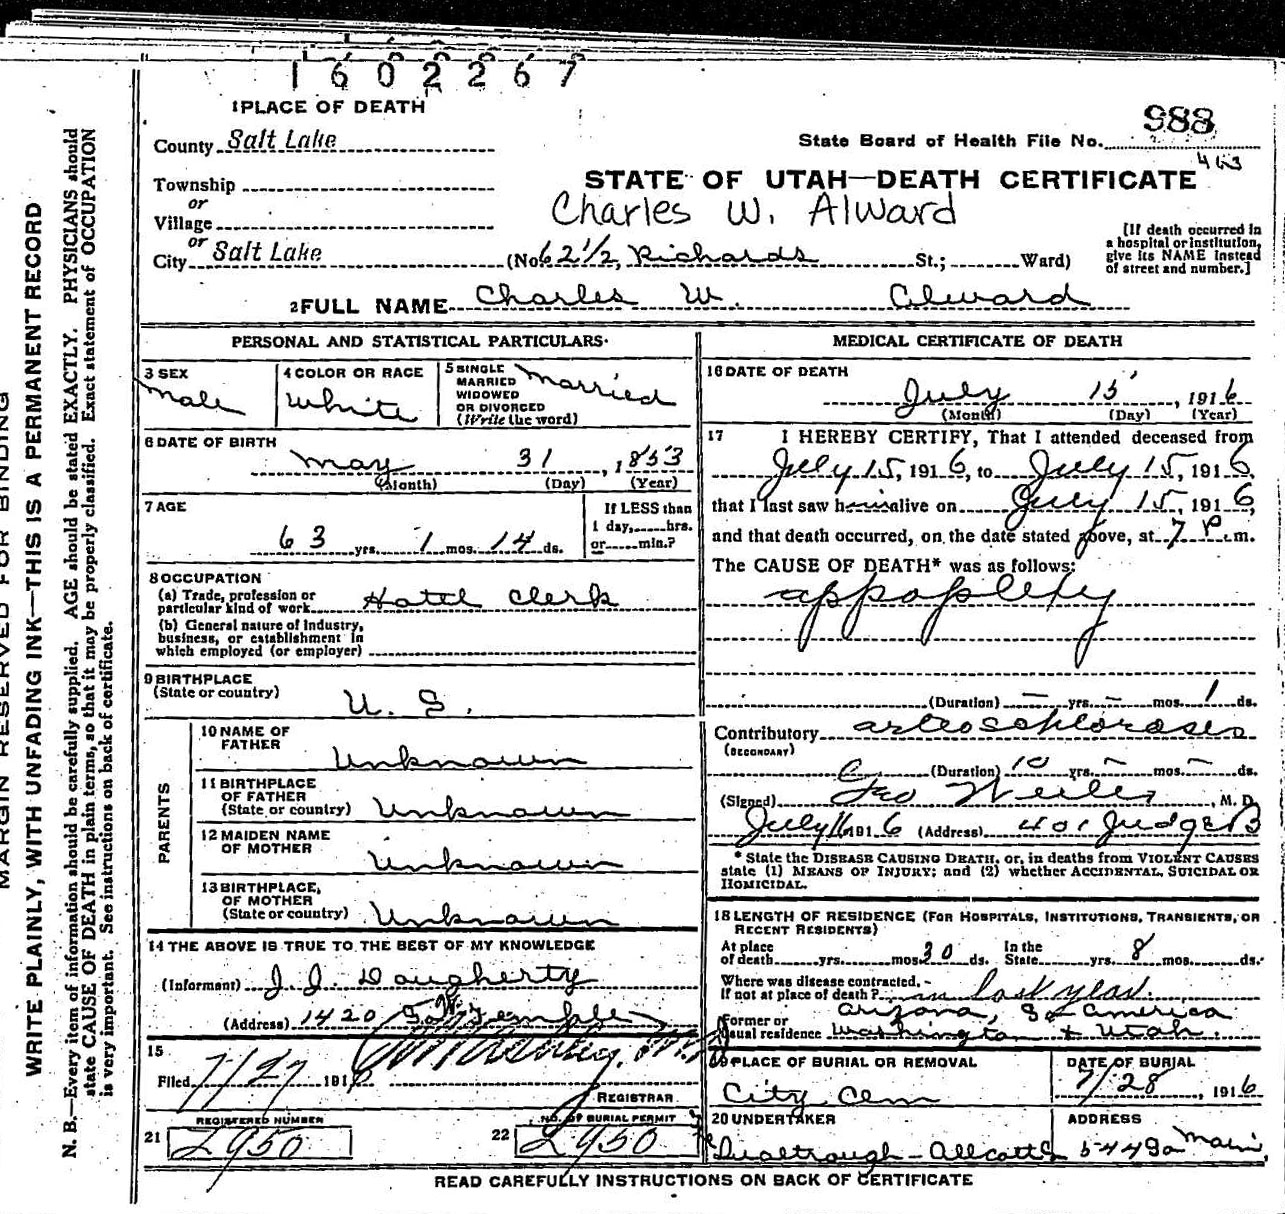 1602267
1 PLACE OF DEATH
County Salt Lake
State Board of Health File No. 988
463
Township
or
Village
or
City Salt Lake
STATE OF UTAH—DEATH CERTIFICATE
Charles W. Alward
(No. 62 1/2, Richards St.; Ward)
[If death occurred in
a hospital or institution,
give its NAME instead
of street and number.]
2 FULL NAME Charles W. Alward
PERSONAL AND STATISTICAL PARTICULARS.
3 SEX
Male
4 COLOR OR RACE
White
5 SINGLE
MARRIED
WIDOWED
OR DIVORCED
(Write the word)
Married
6 DATE OF BIRTH
May 31, 1853
(Month) (Day) (Year)
7 AGE
63 yrs. 1 mos. 14 ds.
If LESS than
1 day, hrs.
or min.?
8 OCCUPATION
(a) Trade, profession or
particular kind of work Hotel Clerk
(b) General nature of industry,
business, or establishment in
which employed (or employer)
9 BIRTHPLACE
(State or country)
U. S.
PARENTS
10 NAME OF
FATHER
Unknown
11 BIRTHPLACE
OF FATHER
(State or country) Unknown
12 MAIDEN NAME
OF MOTHER
Unknown
13 BIRTHPLACE,
OF MOTHER
(State or country) Unknown
14 THE ABOVE IS TRUE TO THE BEST OF MY KNOWLEDGE
(Informant) J. J. Daugherty
(Address) 1420 Temple
15
Filed 7/27 1916
REGISTRAR
REGISTERED NUMBER
21 2950
NO. OF BURIAL PERMIT
22 2950
MEDICAL CERTIFICATE OF DEATH
16 DATE OF DEATH
July 15, 1916
(Month) (Day) (Year)
17 I HEREBY CERTIFY, That I attended deceased from
July 15, 1916, to July 15, 1916,
that I last saw him alive on July 15, 1916,
and that death occurred, on the date stated above, at 7 P.m.
The CAUSE OF DEATH* was as follows:
appoplexy
(Duration) — yrs. — mos. 1 ds.
Contributory
(SECONDARY)
(Duration) 10 yrs. — mos. — ds.
(Signed) Geo , M. D.
July 16 1916 (Address) 401 Judge B
* State the DISEASE CAUSING DEATH, or, in deaths from VIOLENT CAUSES
state (1) MEANS OF INJURY; and (2) whether ACCIDENTAL, SUICIDAL OR
HOMICIDAL.
18 LENGTH OF RESIDENCE (FOR HOSPITALS, INSTITUTIONS, TRANSIENTS, OR
RECENT RESIDENTS)
At place
of death yrs. mos. 30 ds. In the
State yrs. 8 mos. ds.
Where was disease contracted,
If not at place of death? in last year.
Former or
usual residence Arizona, So America
Washington + Utah.
19 PLACE OF BURIAL OR REMOVAL
City Cem
DATE OF BURIAL
7/28, 1916
20 UNDERTAKER
ADDRESS
544 So Main
READ CAREFULLY INSTRUCTIONS ON BACK OF CERTIFICATE
MARGIN RESERVED FOR BINDING
WRITE PLAINLY, WITH UNFADING INK—THIS IS A PERMANENT RECORD
N. B.—Every item of information should be carefully supplied. AGE should be stated EXACTLY. PHYSICIANS should
state CAUSE OF DEATH in plain terms, so that it may be properly classified. Exact statement of OCCUPATION
is very important. See instructions on back of certificate.